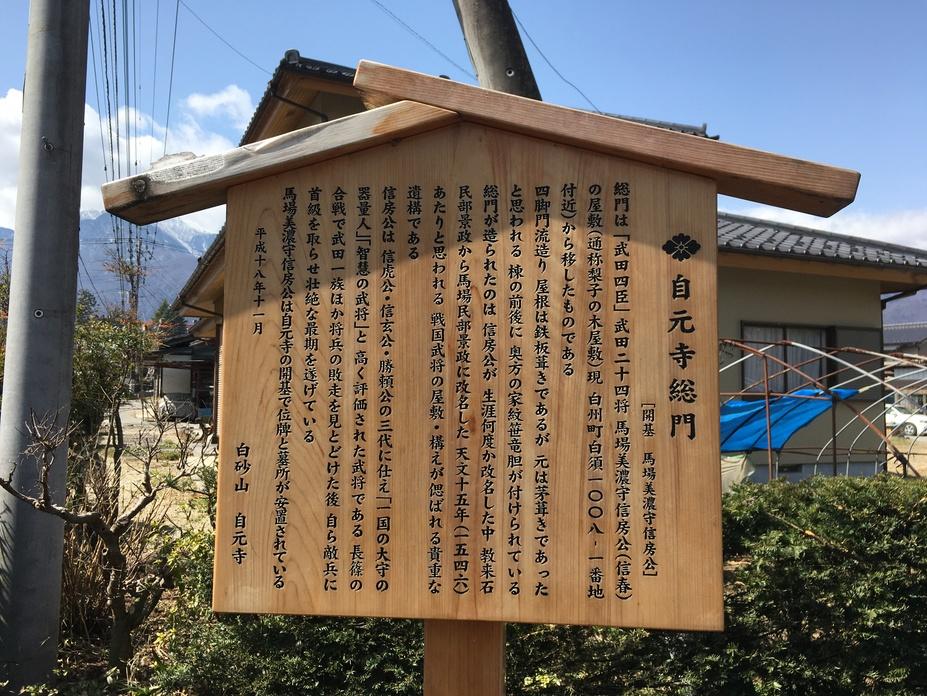 自元寺総門
[開基 馬場美濃守信房公]
総門は「武田四臣」武田二十四将 馬場美濃守信房公(信春)
の屋敷(通称梨子の木屋敷・現 白州町白須一〇〇八・一番地
付近)から移したものである
四脚門流造り 屋根は鉄板葺きであるが 元は茅葺きであった
と思われる 棟の前後に 奥方の家紋笹竜胆が付けられている
総門が造られたのは 信房公が 生涯何度か改名した中 教来石
民部景政から馬場民部景政に改名した 天文十五年(一五四六)
あたりと思われる 戦国武将の屋敷・構えが偲ばれる貴重な
遺構である
信房公は 信虎公・信玄公・勝頼公の三代に仕え「一国の大守の
器量人」「智慧の武将」と 高く評価された武将である 長篠の
合戦で武田一族ほか将兵の敗走を見とどけた後 自ら敵兵に
首級を取らせ壮絶な最期を遂げている
馬場美濃守信房公は自元寺の開基で位牌と墓所が安置されている
平成十八年十一月
白砂山 自元寺